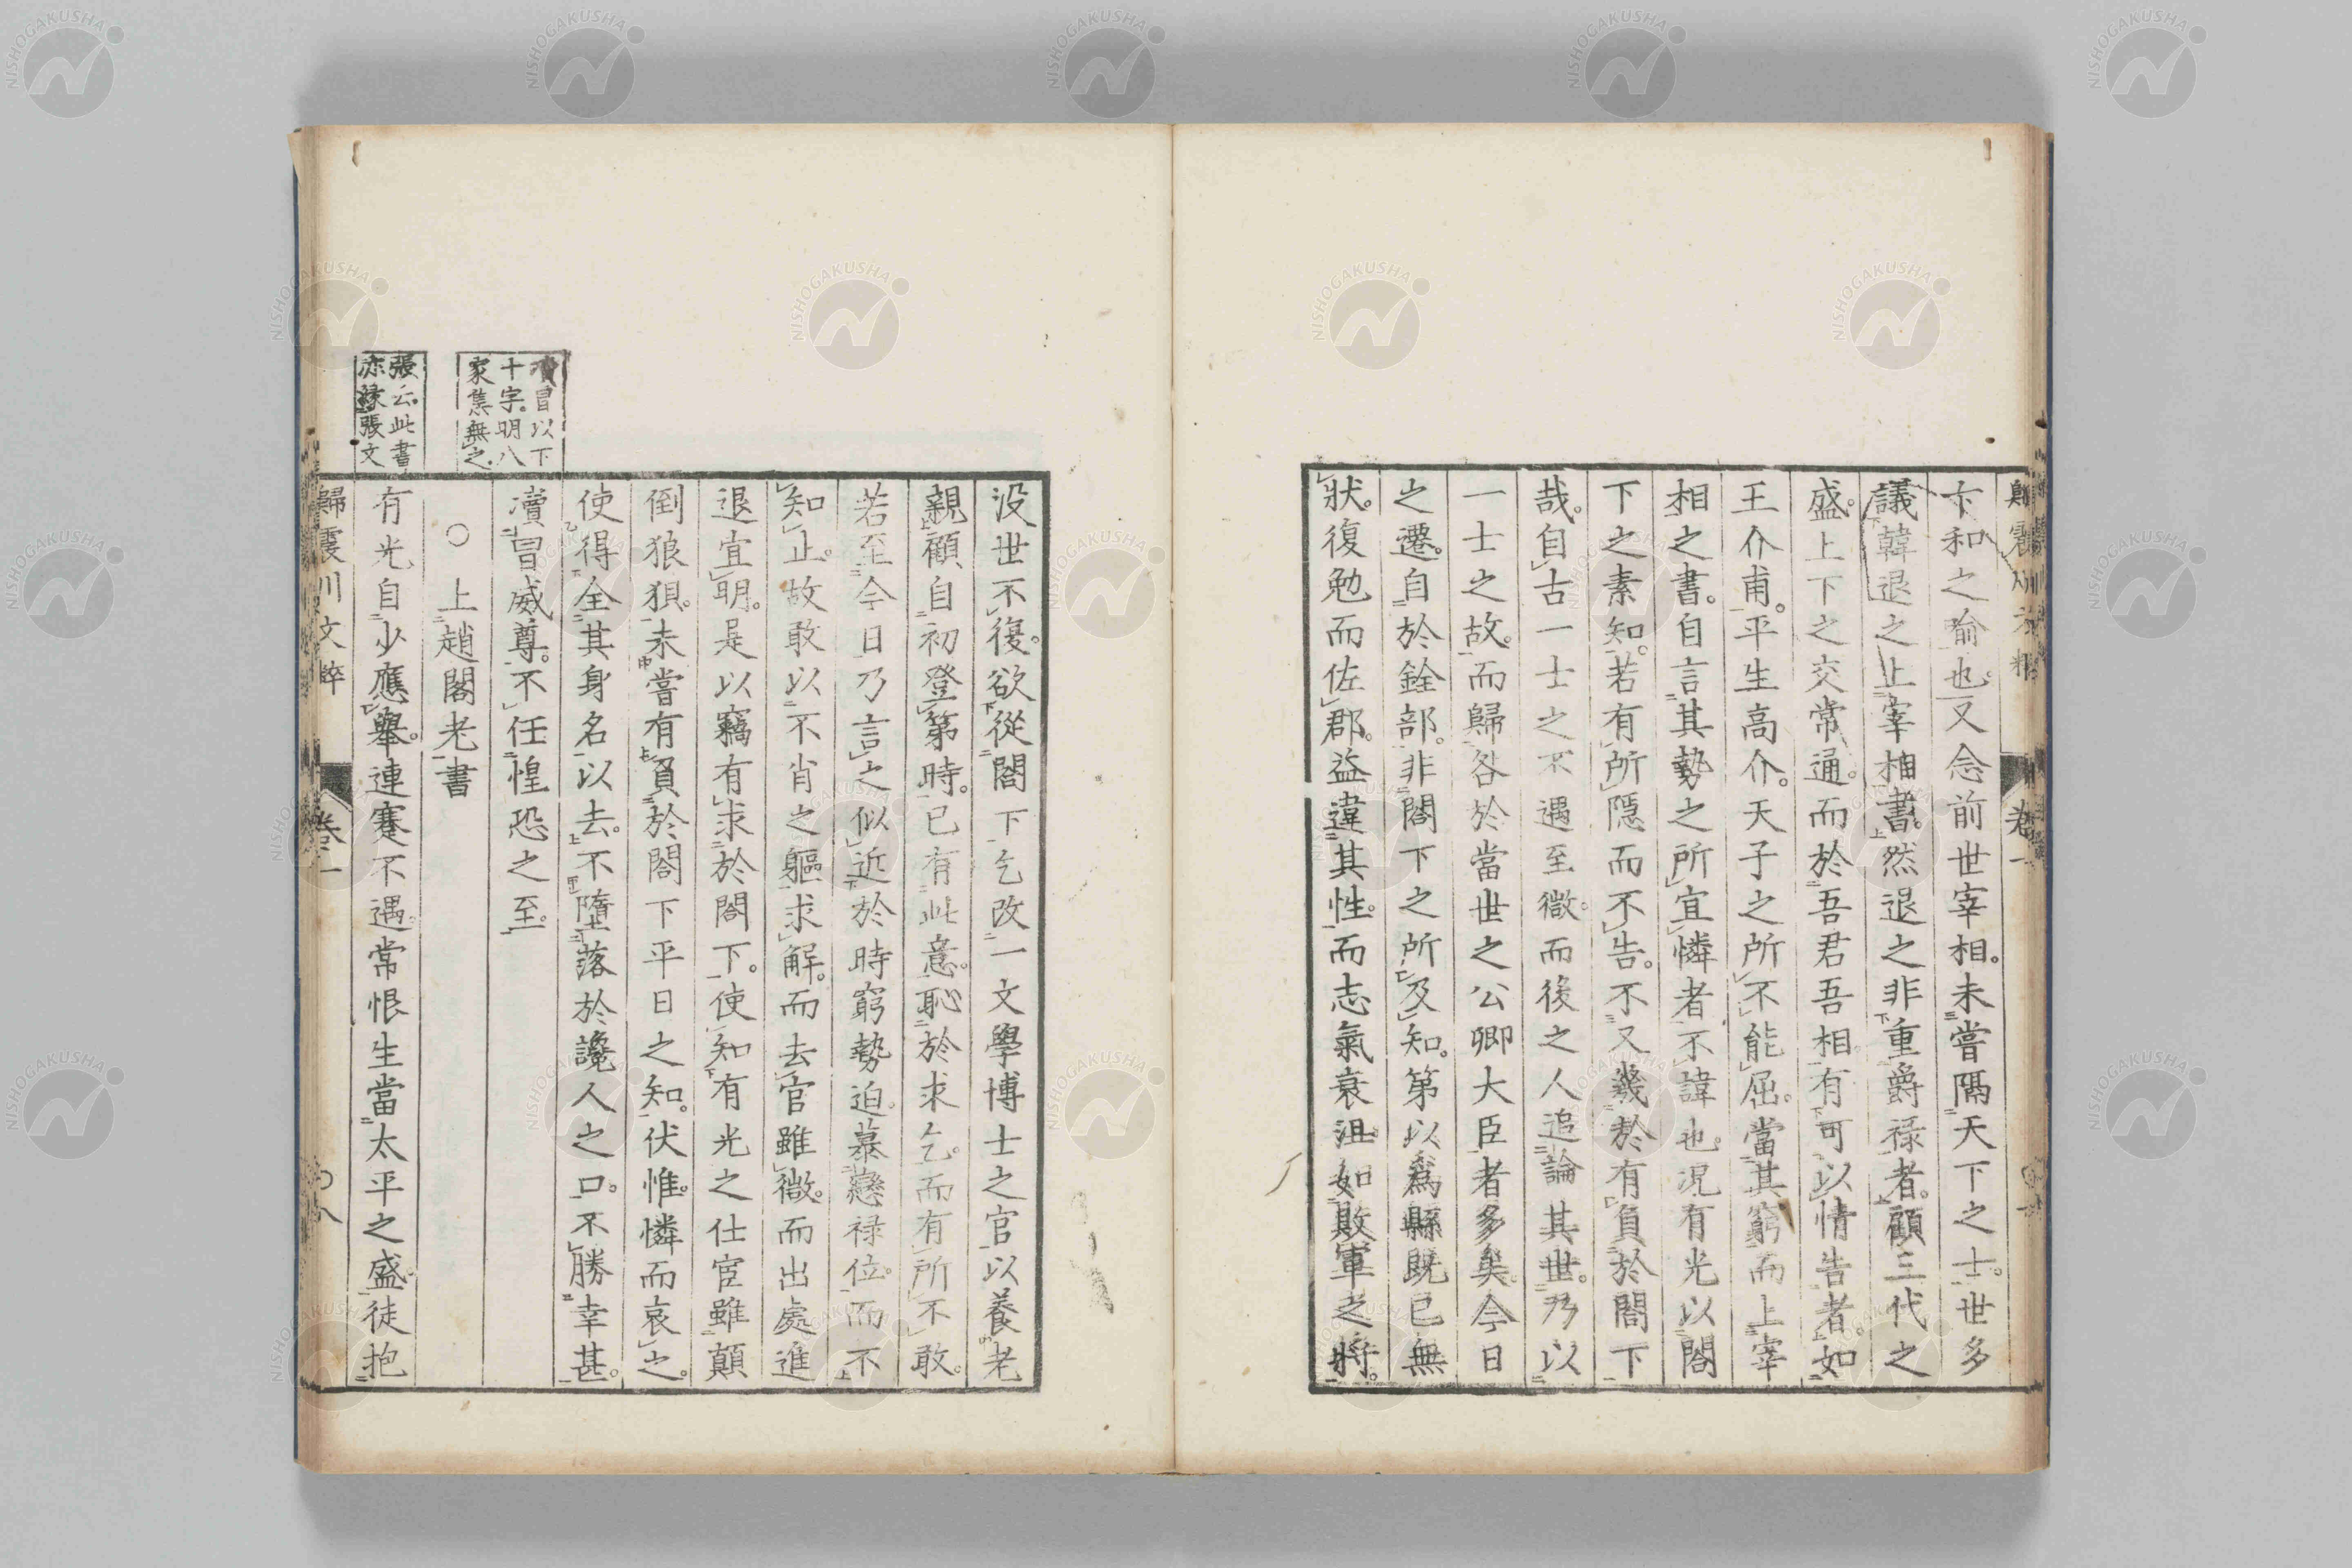 卞和之喩也。又念前世宰相。未嘗隔天下之士。世多
議韓退之上宰相書。然退之非重爵祿者。顧三代之
盛。上下之交常通。而於吾君吾相。有可以情告者。如
王介甫。平生高介。天子之所不能屈。當其窮而上宰
相之書。自言其勢之所宜憐者不諱也。况有光以閤
下之素知。若有所隱而不告。不又幾於有負於閤下
哉。自古一士之不遇至微。而後之人追論其世。乃以
一士之故。而歸咎於當世之公卿大臣者多矣。今日
之遷。自於銓部。非閤下之所及知。第以爲縣既已無
狀。復勉而佐郡。益違其性。而志氣衰沮。如敗軍之將。
沒世不復。欲從閤下乞改一文學博士之官以養老
親。顧自初登第時。已有此意。恥於求乞。而有所不敢。
若至今日乃言之。似近於時窮勢迫。慕戀祿位。而不
知止。故敢以不肖之軀求解。而去官雖微。而出處進
退宜明。是以竊有求於閤下。使知有光之仕宦雖顛
倒狼狽。未嘗有負於閤下平日之知。伏惟憐而哀之。
使得全其身名以去。不墮落於讒人之口。不勝幸甚。
瀆冒威尊。不任惶恐之至。
○上趙閣老書
有光自少應舉。連蹇不遇。常恨生當太平之盛。徒抱
冒以下
十字。明八
家集無之。
張云。此書
亦錄張文
歸震川文粹
卷一
卷一